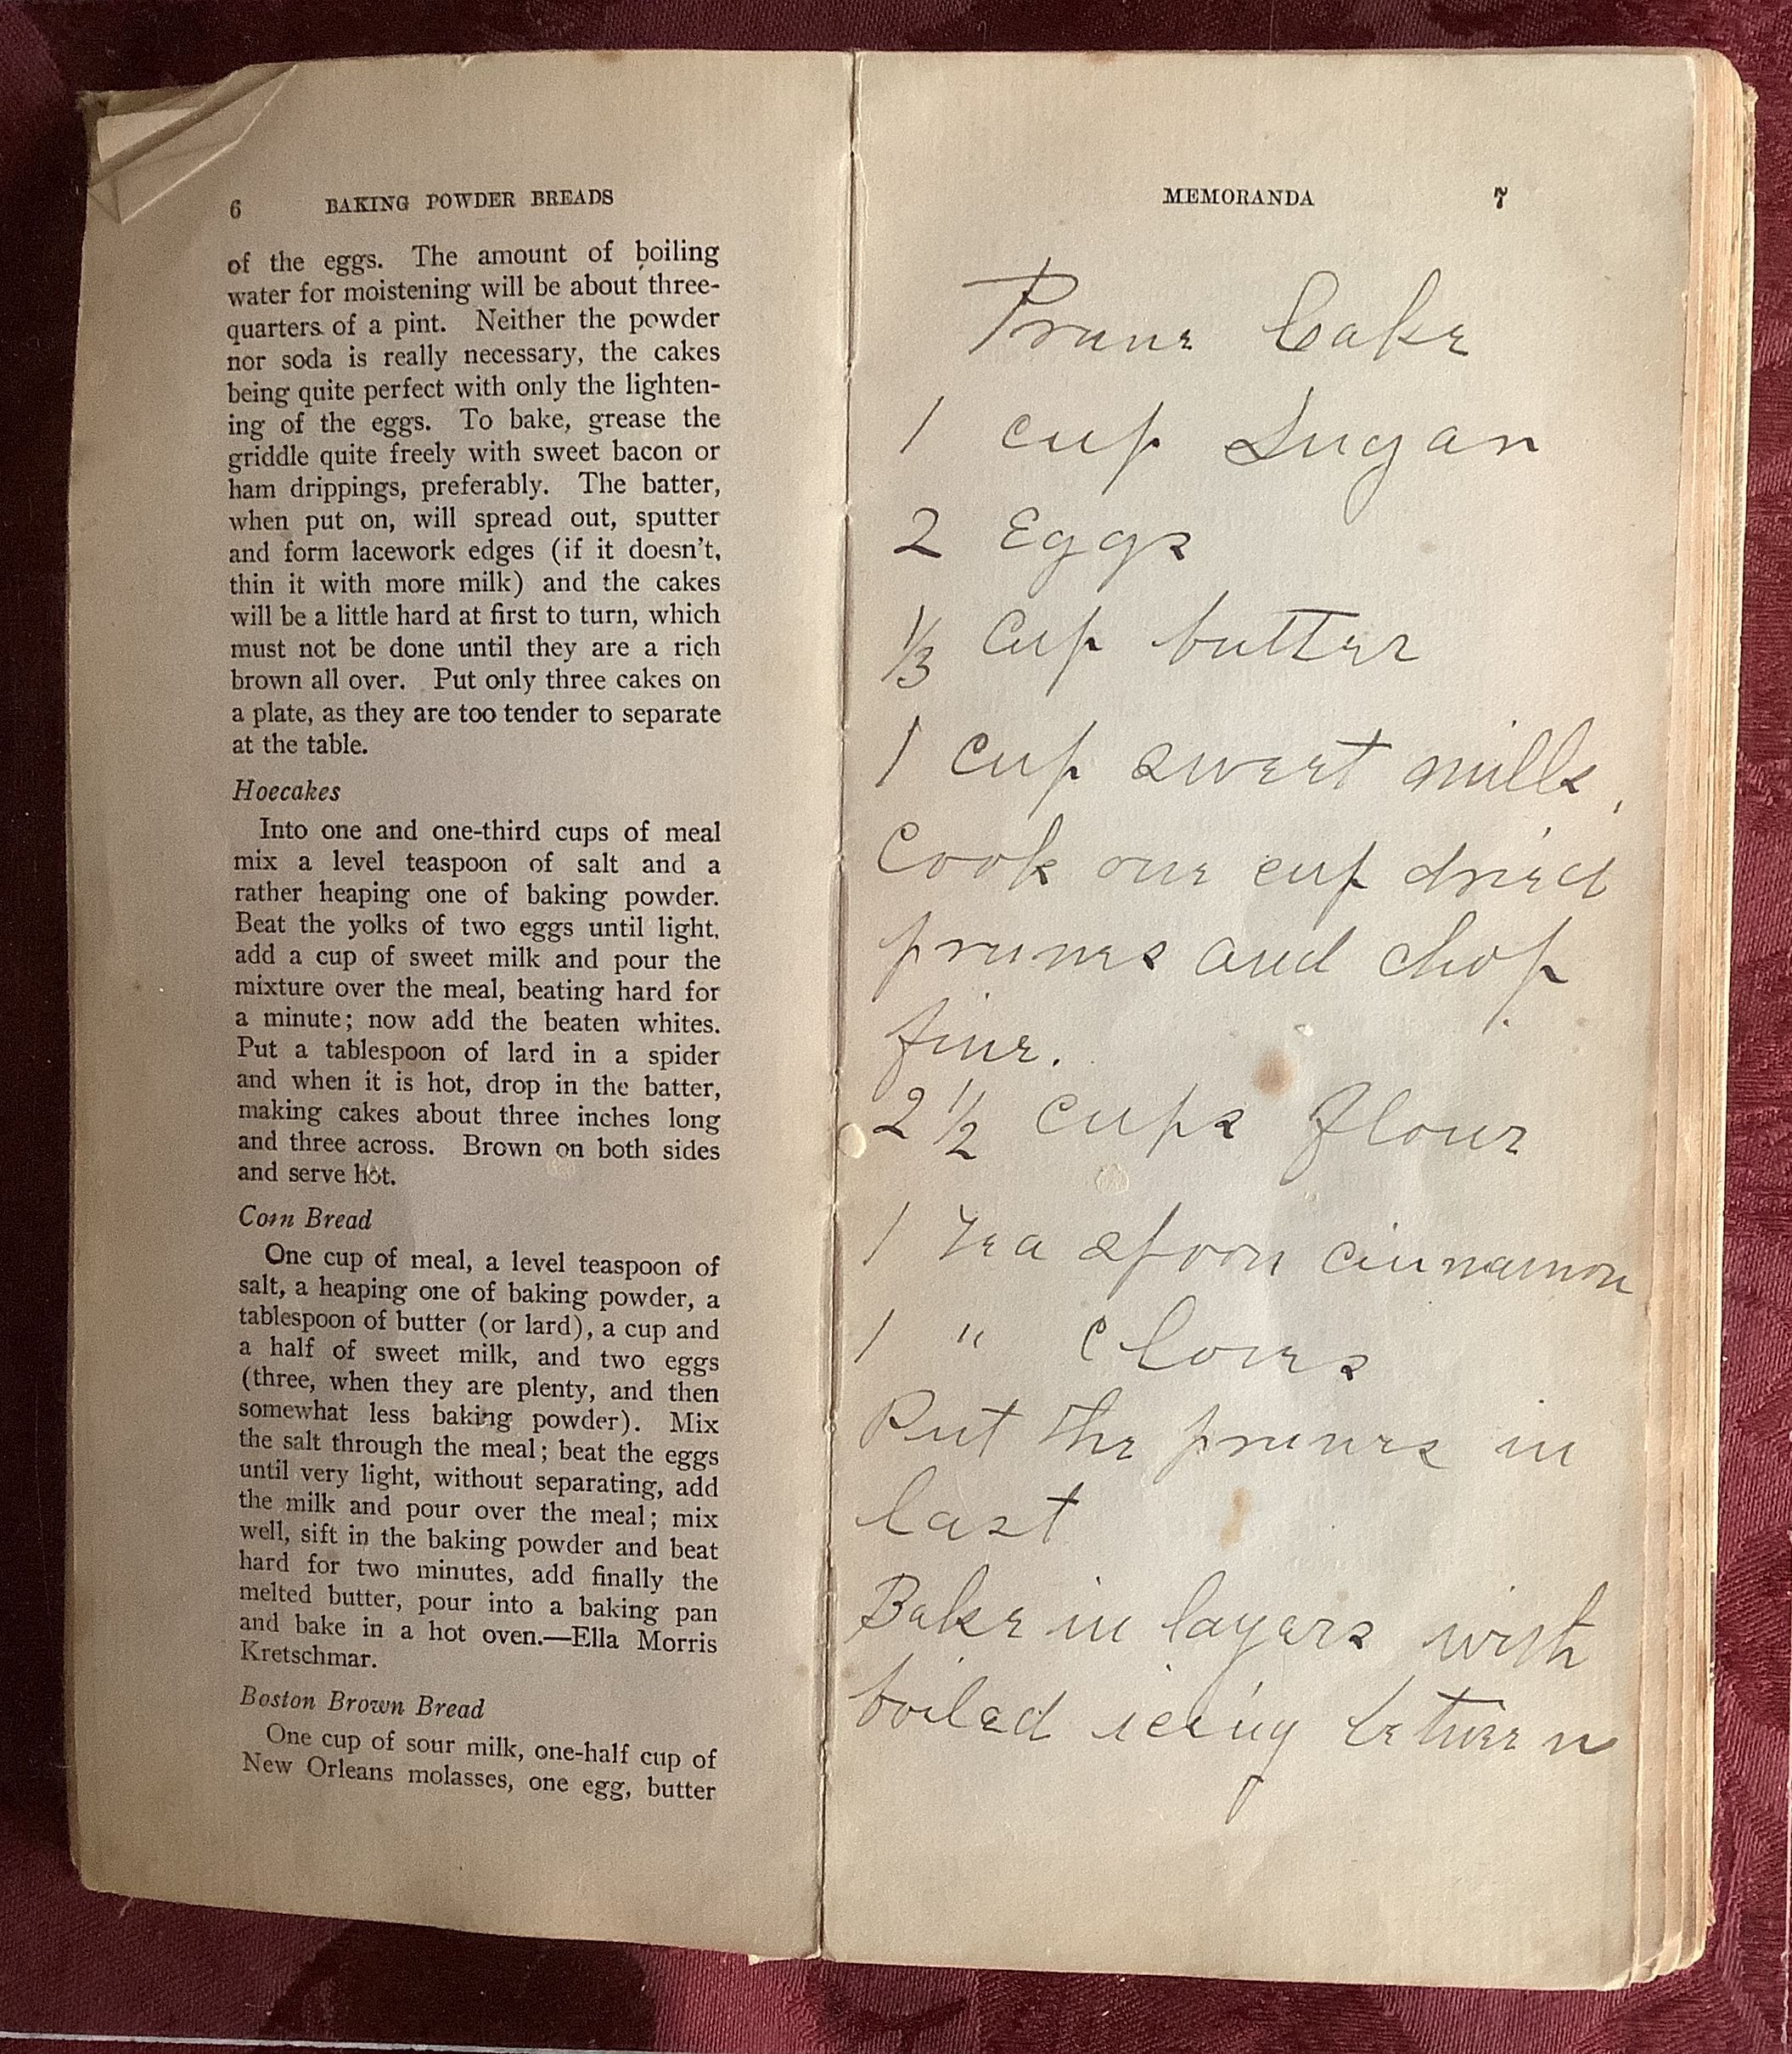 6 BAKING POWDER BREADS
of the eggs. The amount of boiling
water for moistening will be about three-
quarters of a pint. Neither the powder
nor soda is really necessary, the cakes
being quite perfect with only the lighten-
ing of the eggs. To bake, grease the
griddle quite freely with sweet bacon or
ham drippings, preferably. The batter,
when put on, will spread out, sputter
and form lacework edges (if it doesn't,
thin it with more milk) and the cakes
will be a little hard at first to turn, which
must not be done until they are a rich
brown all over. Put only three cakes on
a plate, as they are too tender to separate
at the table.
Hoecakes
Into one and one-third cups of meal
mix a level teaspoon of salt and a
rather heaping one of baking powder.
Beat the yolks of two eggs until light,
add a cup of sweet milk and pour the
mixture over the meal, beating hard for
a minute; now add the beaten whites.
Put a tablespoon of lard in a spider
and when it is hot, drop in the batter,
making cakes about three inches long
and three across. Brown on both sides
and serve hot.
Corn Bread
One cup of meal, a level teaspoon of
salt, a heaping one of baking powder, a
tablespoon of butter (or lard), a cup and
a half of sweet milk, and two eggs
(three, when they are plenty, and then
somewhat less baking powder). Mix
the salt through the meal; beat the eggs
until very light, without separating, add
the milk and pour over the meal; mix
well, sift in the baking powder and beat
hard for two minutes, add finally the
melted butter, pour into a baking pan
and bake in a hot oven.—Ella Morris
Kretschmar.
Boston Brown Bread
One cup of sour milk, one-half cup of
New Orleans molasses, one egg, butter
MEMORANDA 7
Prune Cake
1 cup Sugar
2 Eggs
1/3 Cup butter
1 cup sweet milk,
Cook one cup dried
prunes and chop
fine.
2 1/2 cups flour
1 Tea spoon cinnamon
1 " Cloves
Put the prunes in
last
Bake in layers with
boiled icing between